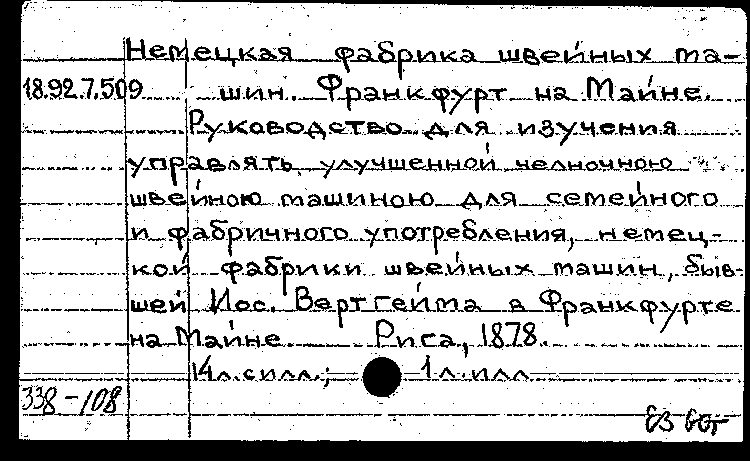 Немецкая фабрика швейных ма-
18.92.7.509 шин. Франкфурт на Майне.
Руководство для изучения
управлять улучшенной челночною
швейною машиною для семейного
и фабричного употребления, немец-
кой фабрики швейных машин, быв-
шей Иос. Вертгейма в Франкфурте
на Майне. Рига, 1878.
14 л. силл.; 1 л. илл
338-108